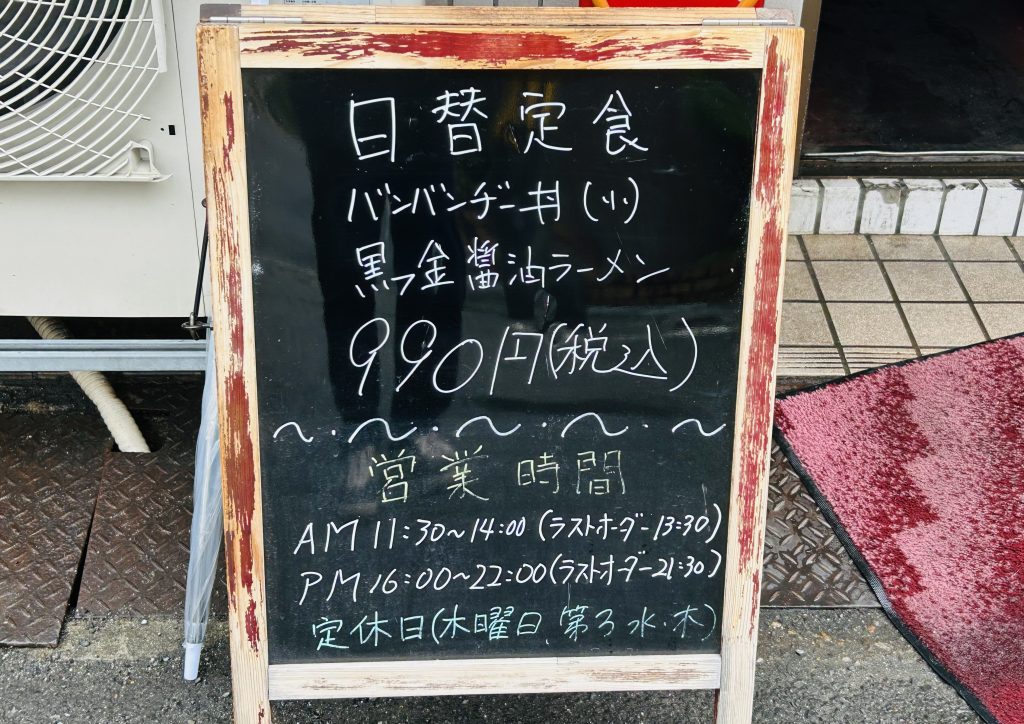 日替定食
バンバンヂー丼(小)
黒っ金醤油ラーメン
990円(税込)
〜・〜・〜・〜・〜
営業時間
AM11:30〜14:00(ラストオーダー13:30)
PM16:00〜22:00(ラストオーダー21:30)
定休日(木曜日、第3水・木)